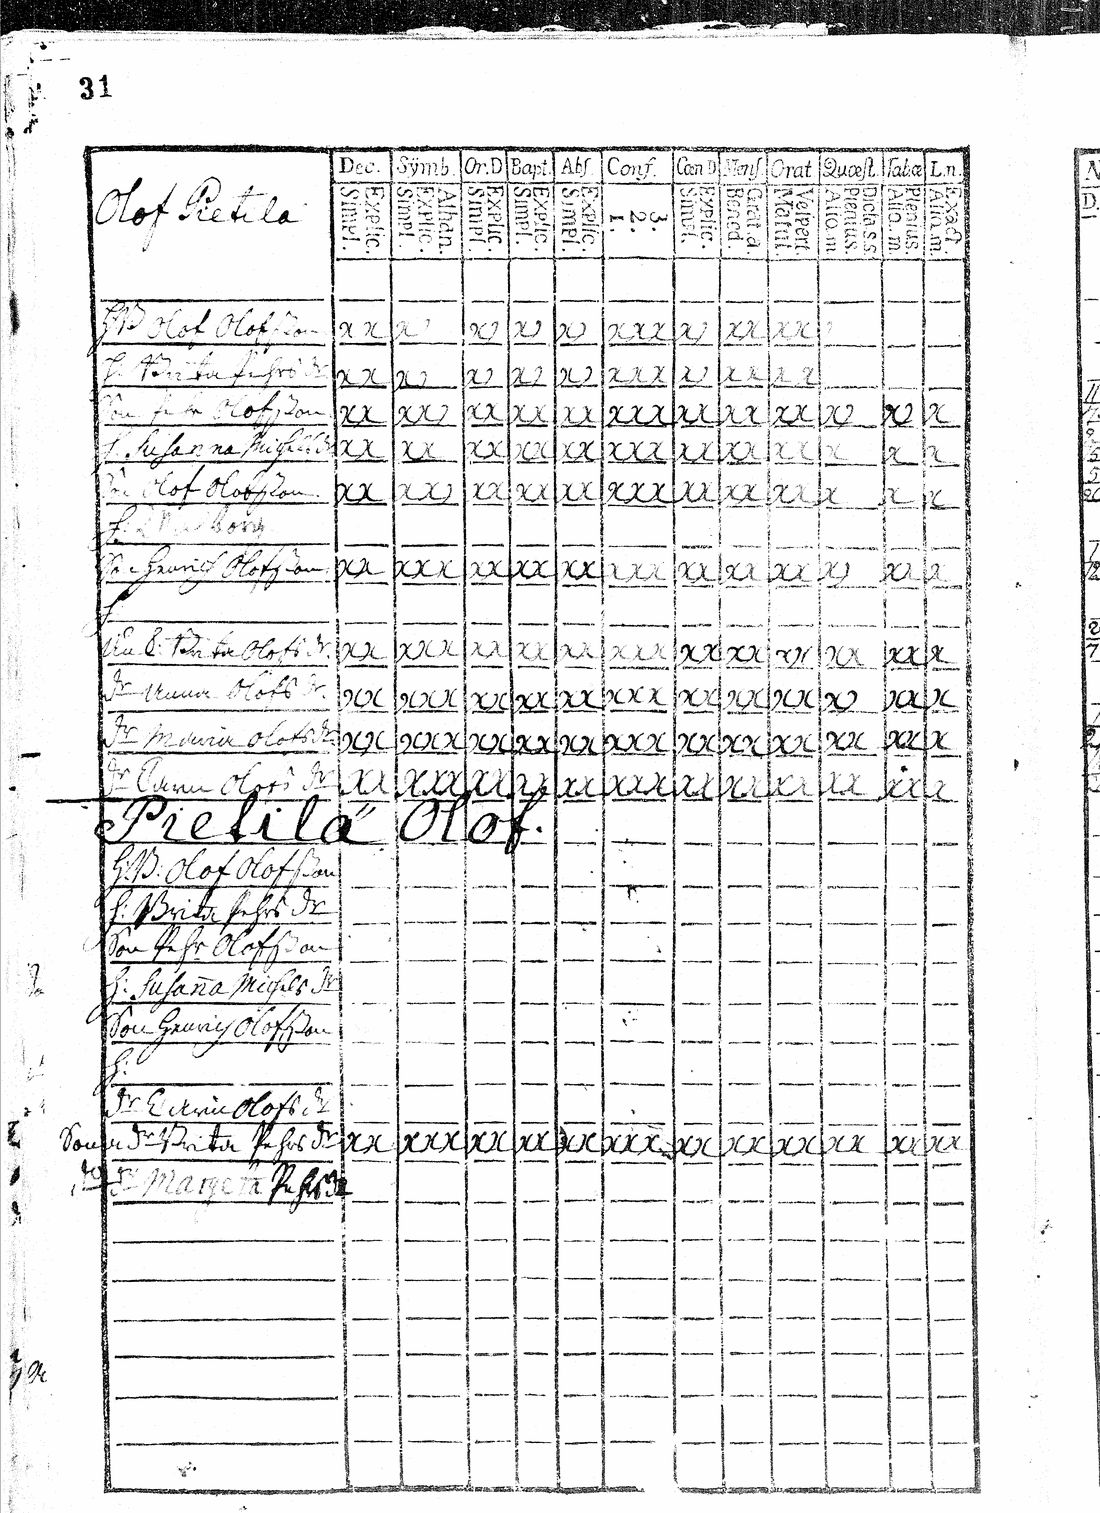 31
Dec. Sÿmb. Or.D Bapt. Abs. Conf. Cœn D Mens. Orat Quæst. Tabæ L.n.
Olof Pietilä
Explic. Simpl. Athan. Explic. Simpl. Explic. Simpl. Explic. Simpl. Explic. Simpl. 3. 2. 1. Explic. Simpl. Grat. a. Bened. Vespert. Matut. Dicta s.s. Plenius. Alio. m Plenius. Alio. m. Exact. Alio. m.
H.B Olof Olofsson x x x x x x x x x x x x x x x
h. Brita Pehrs dr x x x x x x x x x x x x x x
Son Pehr Olofsson xx xx xx xx xx xxx xx xx xx x x x
h. Susanna Michels dr xx xx xx xx xx xxx xx xx xx x x x
Son Olof Olofsson xx xx xx xx xx xxx xx xx xx x x x
h.
Son Henrich Olofsson xx xxx xx xx xx xxx xx xx xx x xx x
h
Brita Olofs dr. xx xxx xx xx xx xxx xx xx xx xx xxx
dr Anna Olofs dr. xx xxx xx xx xx xxx xx xx xx x xx x
dr Maria Olofs dr xx xxx xx xx xx xxx xx xx xx xx xx x
dr Carin Olofs dr xx xxx xx xx xx xxx xx xx xx xx xx x
Pietilä Olof.
H:B: Olof Olofsson
h: Brita Pehrs dr
Son Pehr Olofsson
h: Susaña Michels dr
Son Henrich Olofsson
h:
dr Carin Olofs dr
Sonens dr Brita Pehrs dr xx xxx xx xx xx xxx xx xx xx xx xx xx
do dr Margeta Pehrs dr